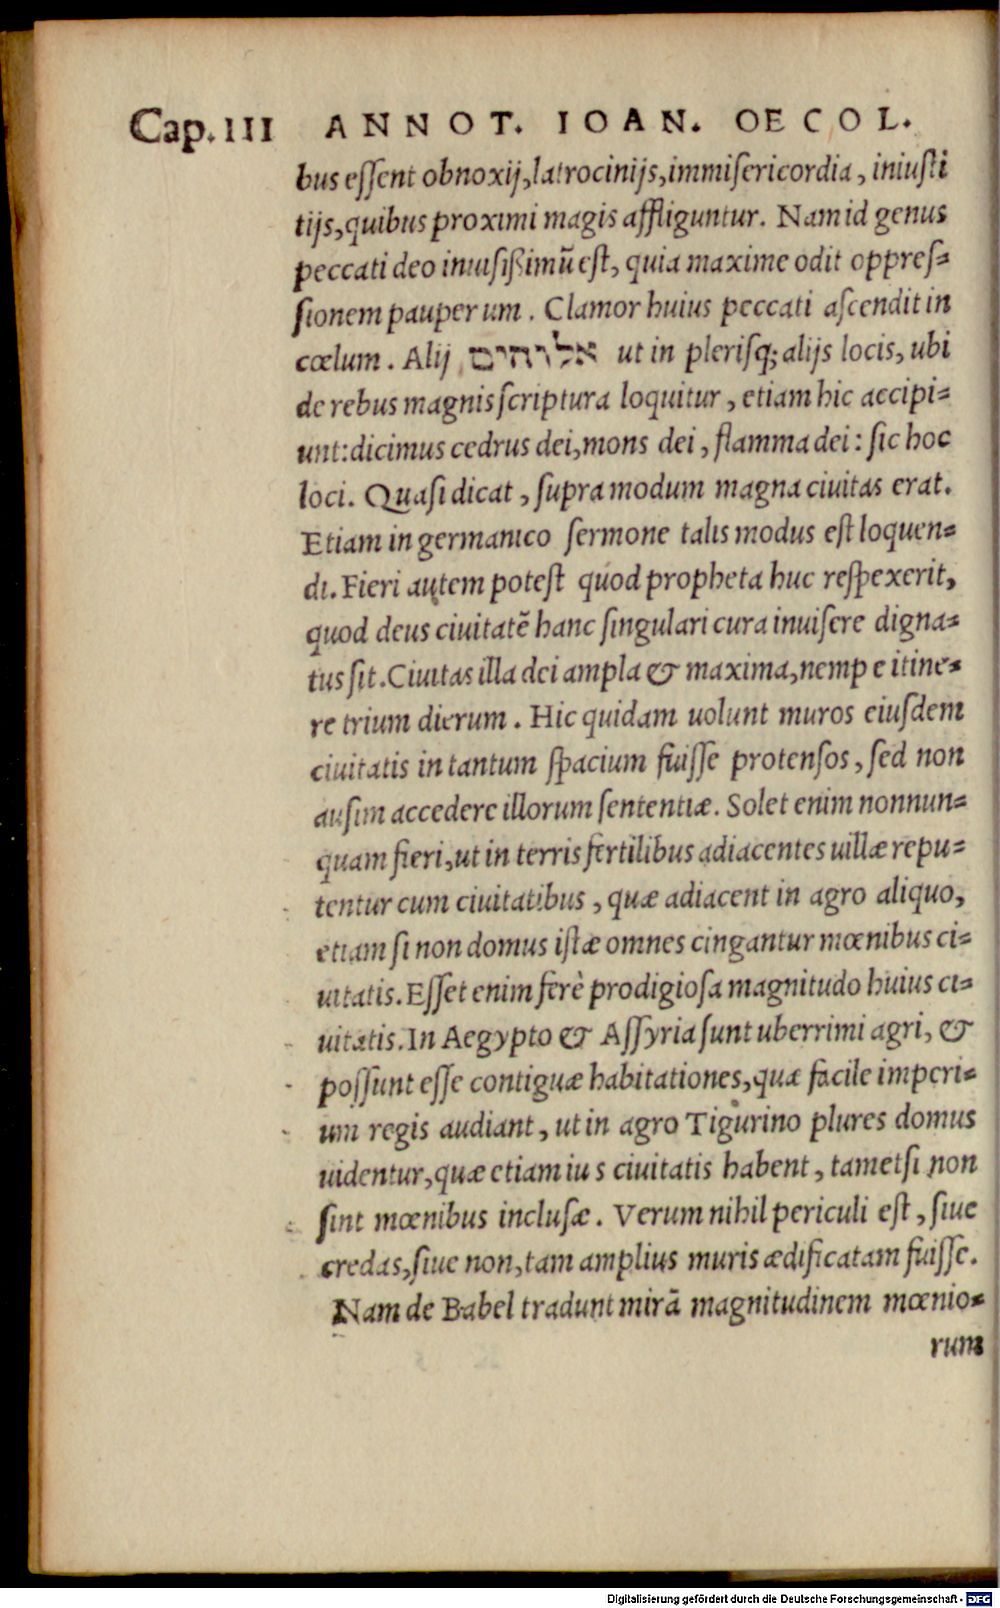 Cap. III ANNOT. IOAN. OECOL.
bus eſſent obnoxij, latrocinijs, immiſericordia, iniuſti
tijs, quibus proximi magis affliguntur. Nam id genus
peccati deo inuiſißimũ eſt, quia maxime odit oppreſ⸗
ſionem pauperum. Clamor huius peccati aſcendit in
cœlum. Alij אלוהים ut in pleriſq; alijs locis, ubi
de rebus magnis ſcriptura loquitur, etiam hic accipi⸗
unt: dicimus cedrus dei, mons dei, flamma dei: ſic hoc
loci. Quaſi dicat, ſupra modum magna ciuitas erat.
Etiam in germanico ſermone talis modus eſt loquen⸗
di. Fieri autem poteſt quod propheta huc reſpexerit,
quod deus ciuitatẽ hanc ſingulari cura inuiſere digna⸗
tus ſit. Ciuitas illa dei ampla & maxima, nempe itine⸗
re trium dierum. Hic quidam uolunt muros eiuſdem
ciuitatis in tantum ſpacium fuiſſe protenſos, ſed non
auſim accedere illorum ſententiæ. Solet enim nonnun⸗
quam fieri, ut in terris fertilibus adiacentes uillæ repu⸗
tentur cum ciuitatibus, quæ adiacent in agro aliquo,
etiam ſi non domus iſtæ omnes cingantur mœnibus ci⸗
uitatis. Eſſet enim ferè prodigioſa magnitudo huius ci⸗
uitatis. In Aegypto & Aſſyria ſunt uberrimi agri, &
poſſunt eſſe contiguæ habitationes, quæ facile imperi⸗
um regis audiant, ut in agro Tigurino plures domus
uidentur, quæ etiam ius ciuitatis habent, tametſi non
ſint mœnibus incluſæ. Verum nihil periculi eſt, ſiue
credas, ſiue non, tam amplius muris ædificatam fuiſſe.
Nam de Babel tradunt mirã magnitudinem mœnio⸗
rum
Digitalisierung gefördert durch die Deutsche Forschungsgemeinschaft - DFG